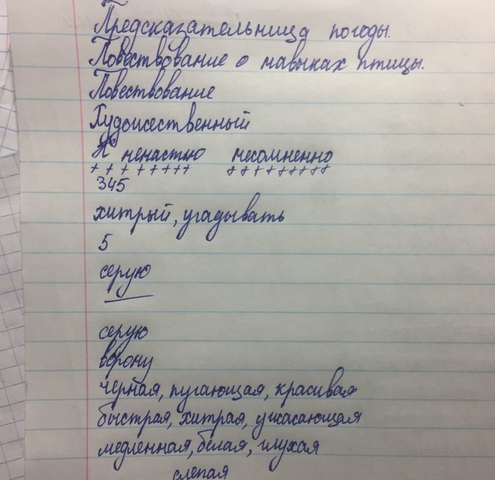 Предсказательница погоды.
Повествование о навыках птицы.
Повествование
Художественный
К ненастью несомненно
+ + + + + + + + + + + + + + + + +
345
хитрый, угадывать
5
серую
серую
ворону
чёрная, пугающая, красивая
быстрая, хитрая, ужасающая
медленная, белая, глухая
слепая